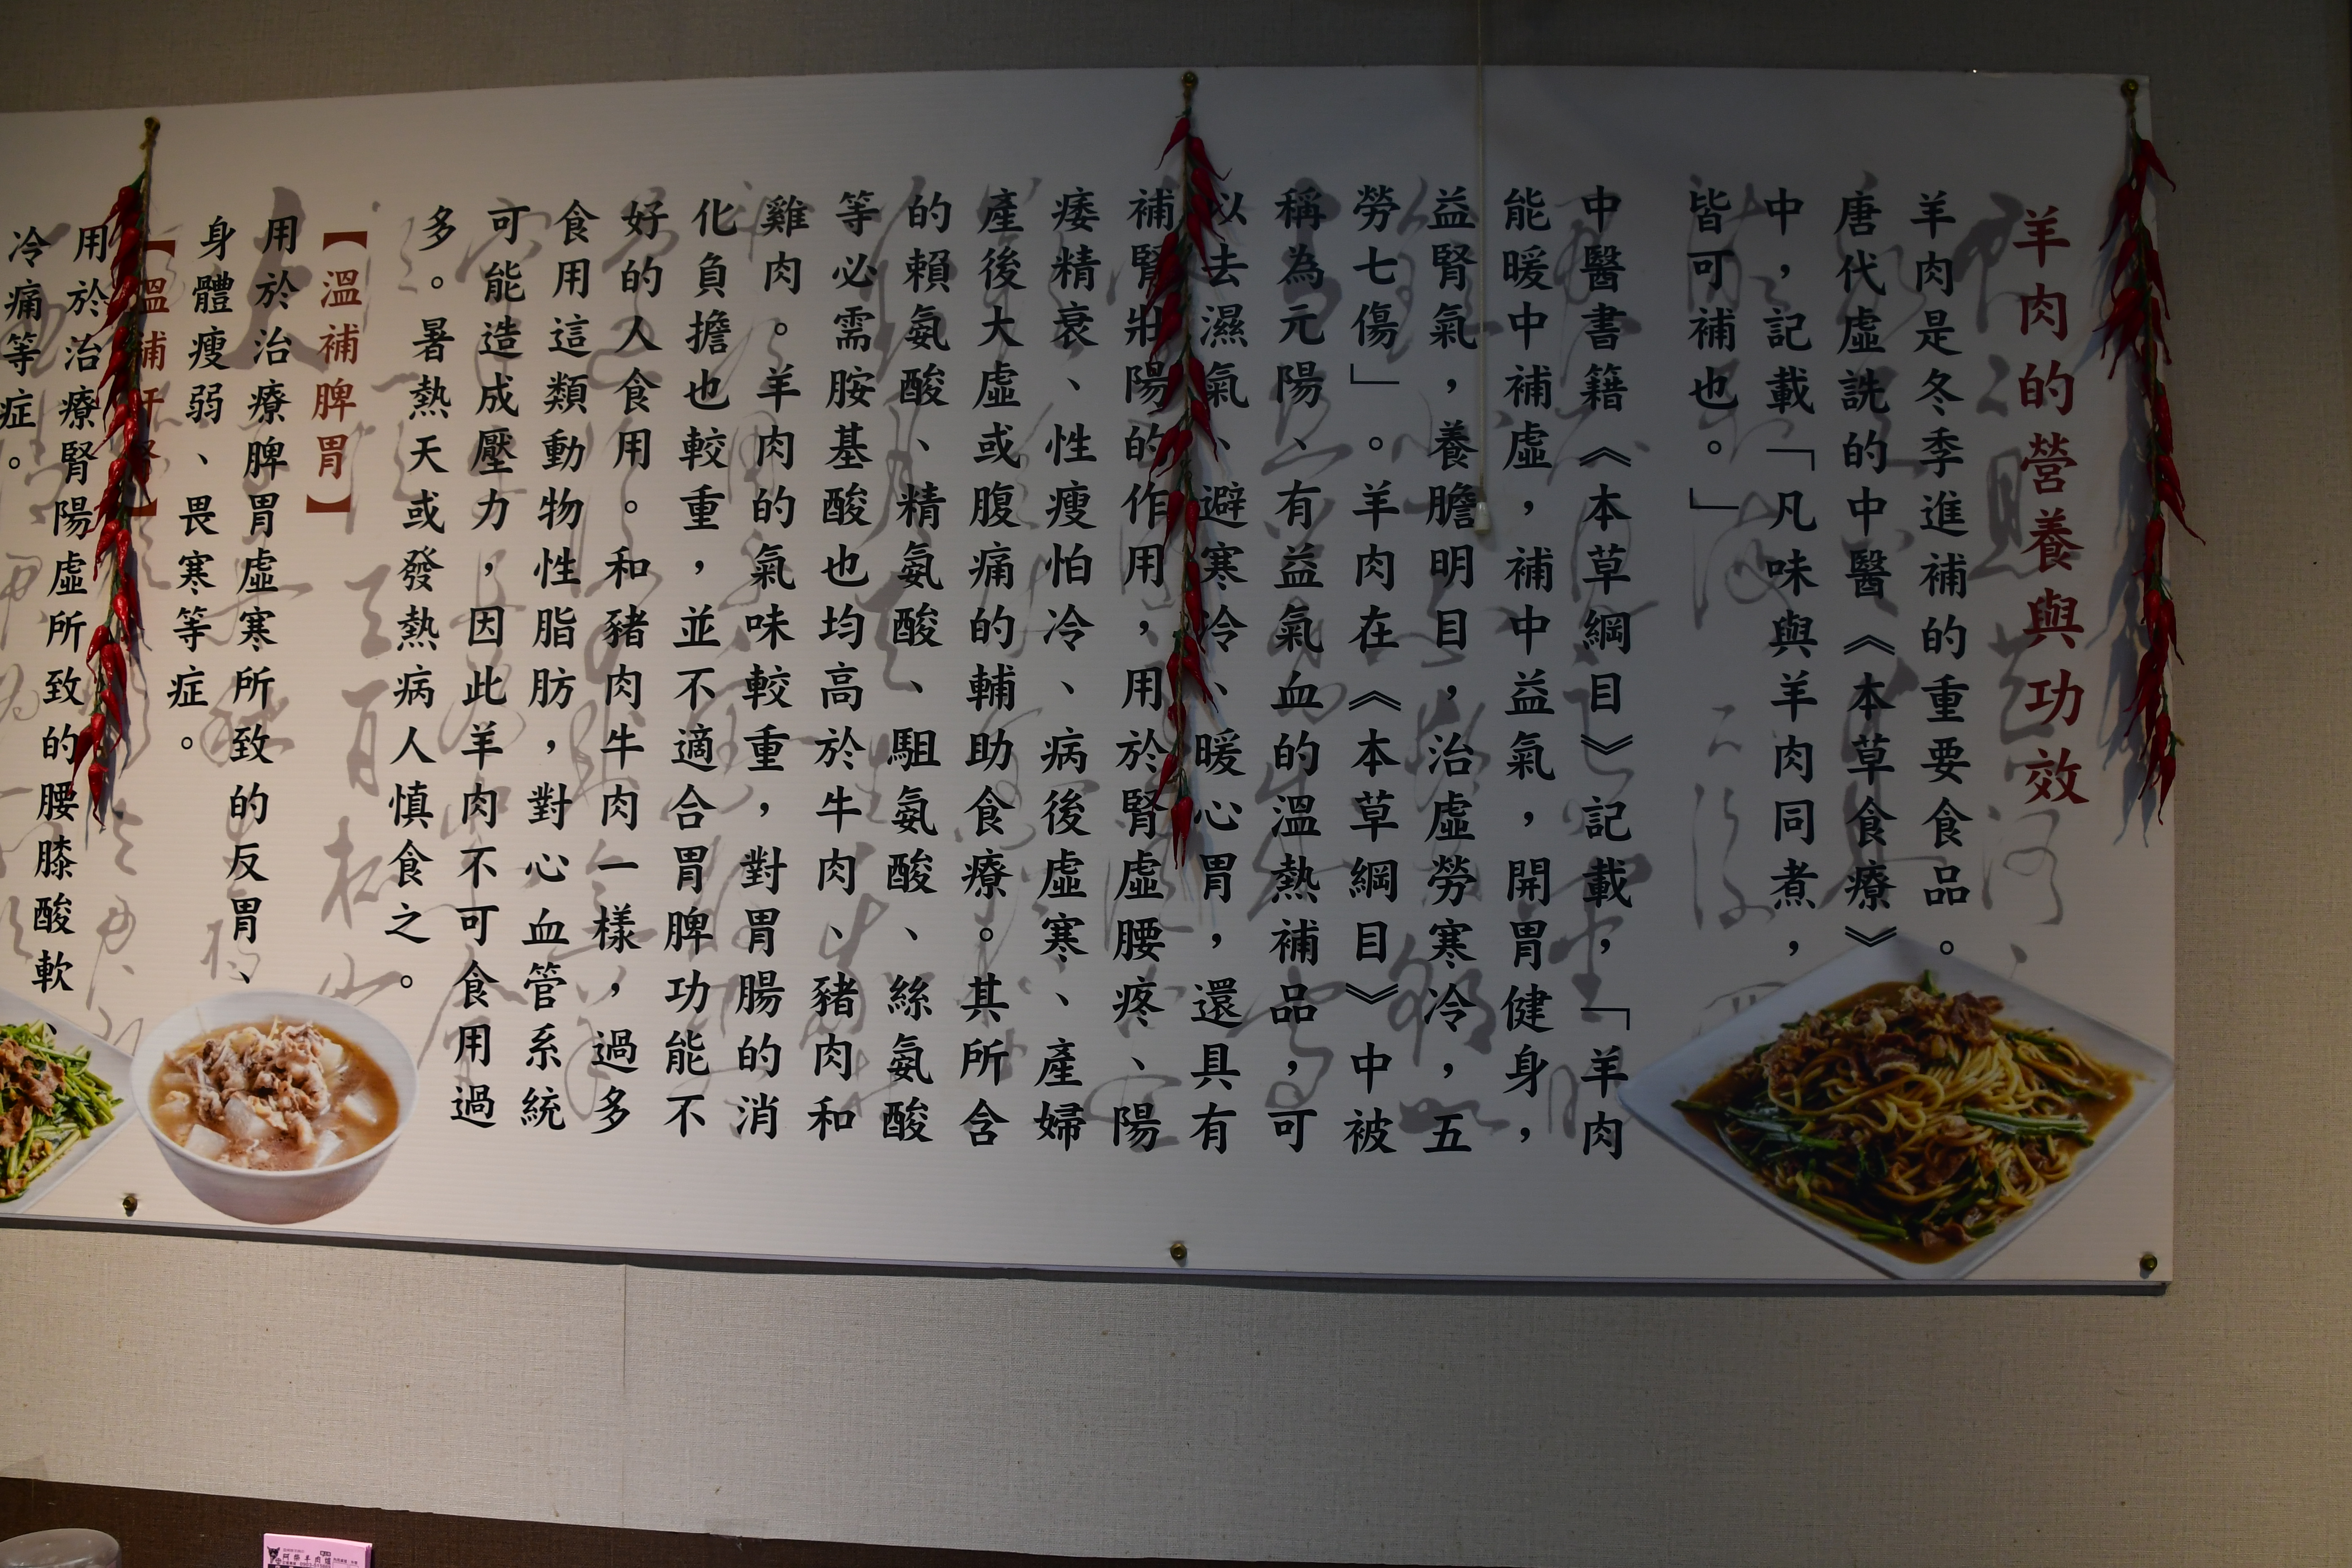 羊肉的營養與功效
羊肉是冬季進補的重要食品。
唐代虛詵的中醫《本草食療》
中，記載「凡味與羊肉同煮，
皆可補也。」
中醫書籍《本草綱目》記載，「羊肉
能暖中補虛，補中益氣，開胃健身，
益腎氣，養膽明目，治虛勞寒冷，五
勞七傷」。羊肉在《本草綱目》中被
稱為元陽、有益氣血的溫熱補品，可
以去濕氣、避寒冷、暖心胃，還具有
補腎壯陽的作用，用於腎虛腰疼、陽
痿精衰、性瘦怕冷、病後虛寒、產婦
產後大虛或腹痛的輔助食療。其所含
的賴氨酸、精氨酸、駔氨酸、絲氨酸
等必需胺基酸也均高於牛肉、豬肉和
雞肉。羊肉的氣味較重，對胃腸的消
化負擔也較重，並不適合胃脾功能不
好的人食用。和豬肉牛肉一樣，過多
食用這類動物性脂肪，對心血管系統
可能造成壓力，因此羊肉不可食用過
多。暑熱天或發熱病人慎食之。
【溫補脾胃】
用於治療脾胃虛寒所致的反胃、
身體瘦弱、畏寒等症。
【溫補肝腎】
用於治療腎陽虛所致的腰膝酸軟、
冷痛等症。
阿榮羊肉爐